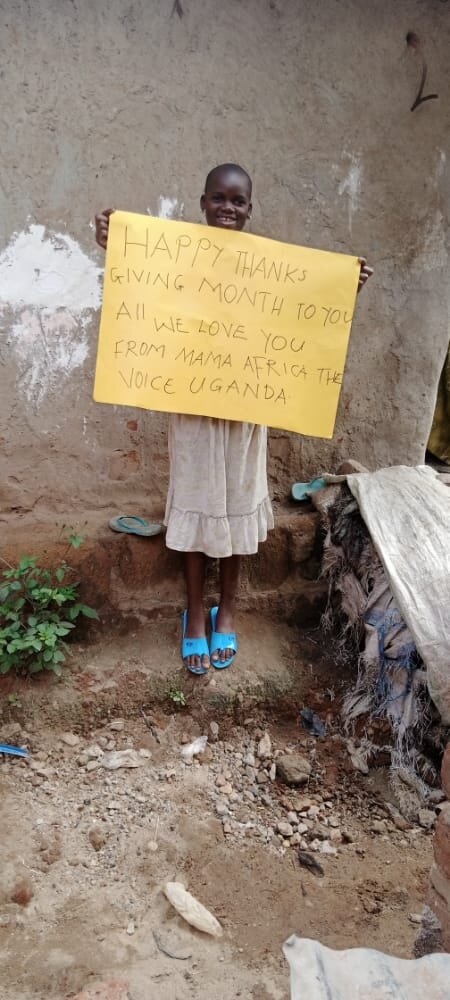 HAPPY THANKS
GIVING MONTH TO YOU
All WE LOVE YOU
FROM MAMA AFRICA THE
VOICE UGANDA.